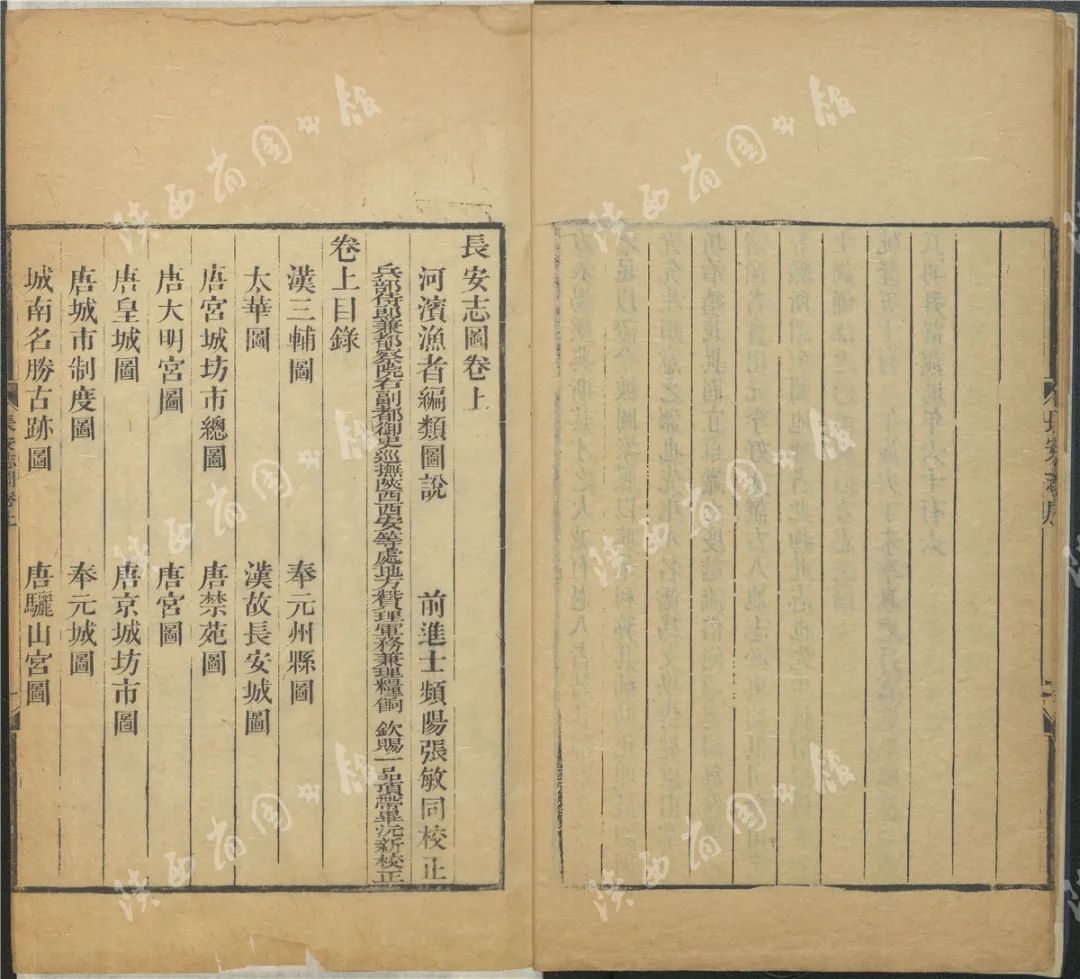 長安志圖卷上
河濱漁者編類圖說　前進士頻陽張敏同校正
兵部侍郎兼都察院右副都御史巡撫陝西西安等處地方贊理軍務兼理糧餉　欽賜一品頂帶畢沅新校正
卷上目錄
漢三輔圖　奉元州縣圖
太華圖　漢故長安城圖
唐宮城坊市總圖　唐禁苑圖
唐大明宮圖　唐宮圖
唐皇城圖　唐京城坊市圖
唐城市制度圖　奉元城圖
城南名勝古跡圖　唐驪山宮圖
長安志圖卷上
長安志序
陕西省图书馆